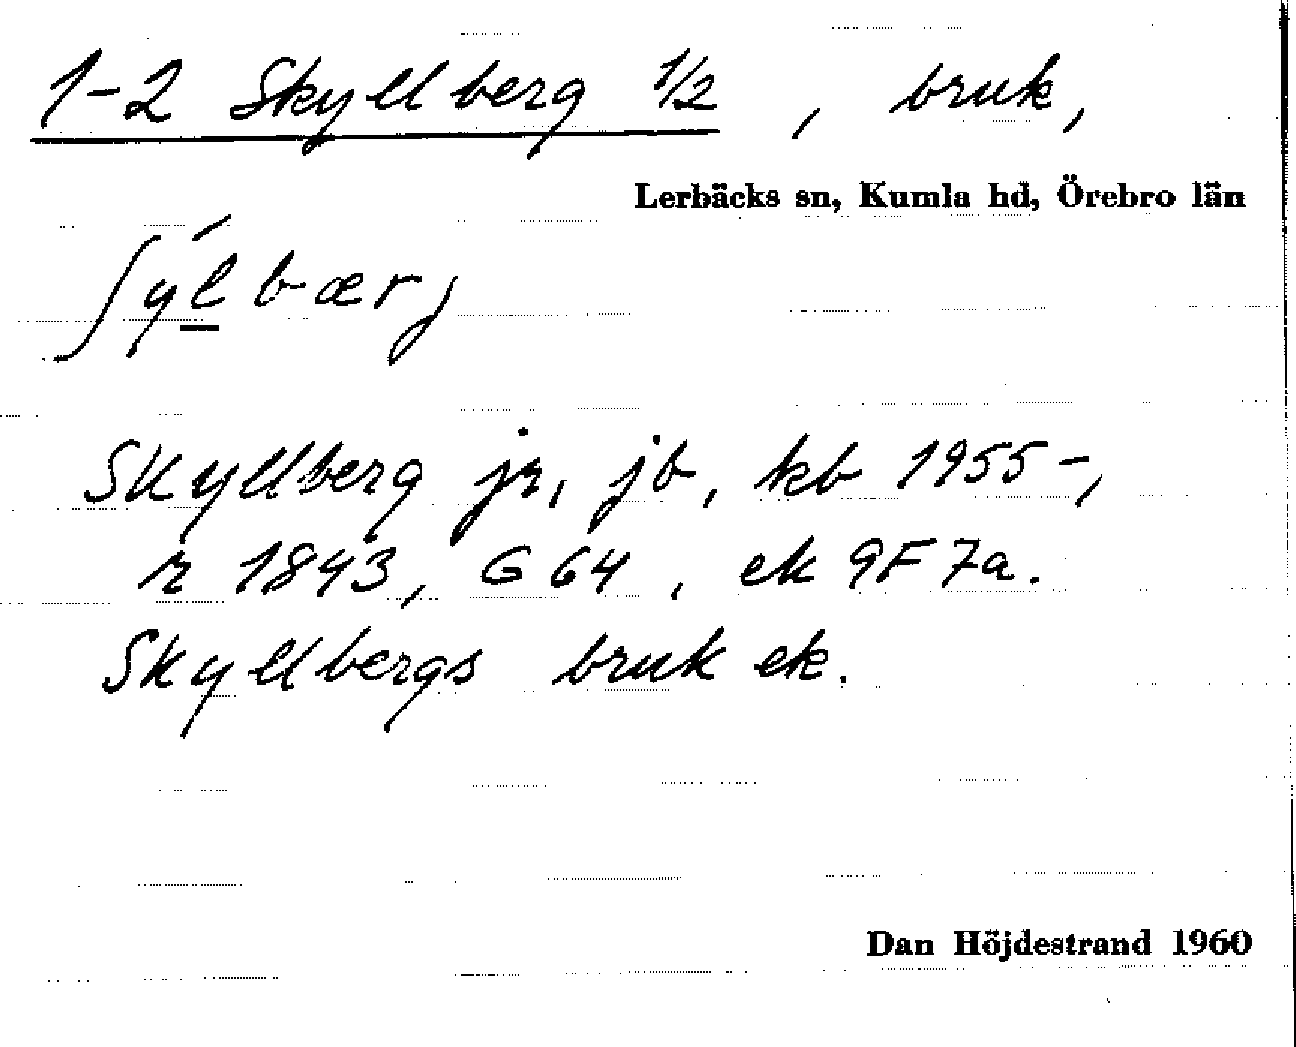 1-2 Skyllberg 1/2, bruk,
Lerbäcks sn, Kumla hd, Örebro län
ʃýl̲bærj
Skyllberg jr, jb, kb 1955-,
r 1843, G 64, ek 9F 7a.
Skyllbergs bruk ek.
Dan Höjdestrand 1960